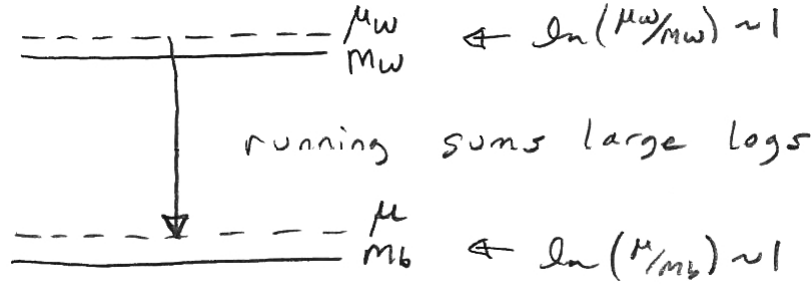 μw ← ln(μw/mw) ~1
mw
running sums large logs
μ
mb ← ln(μ/mb) ~1